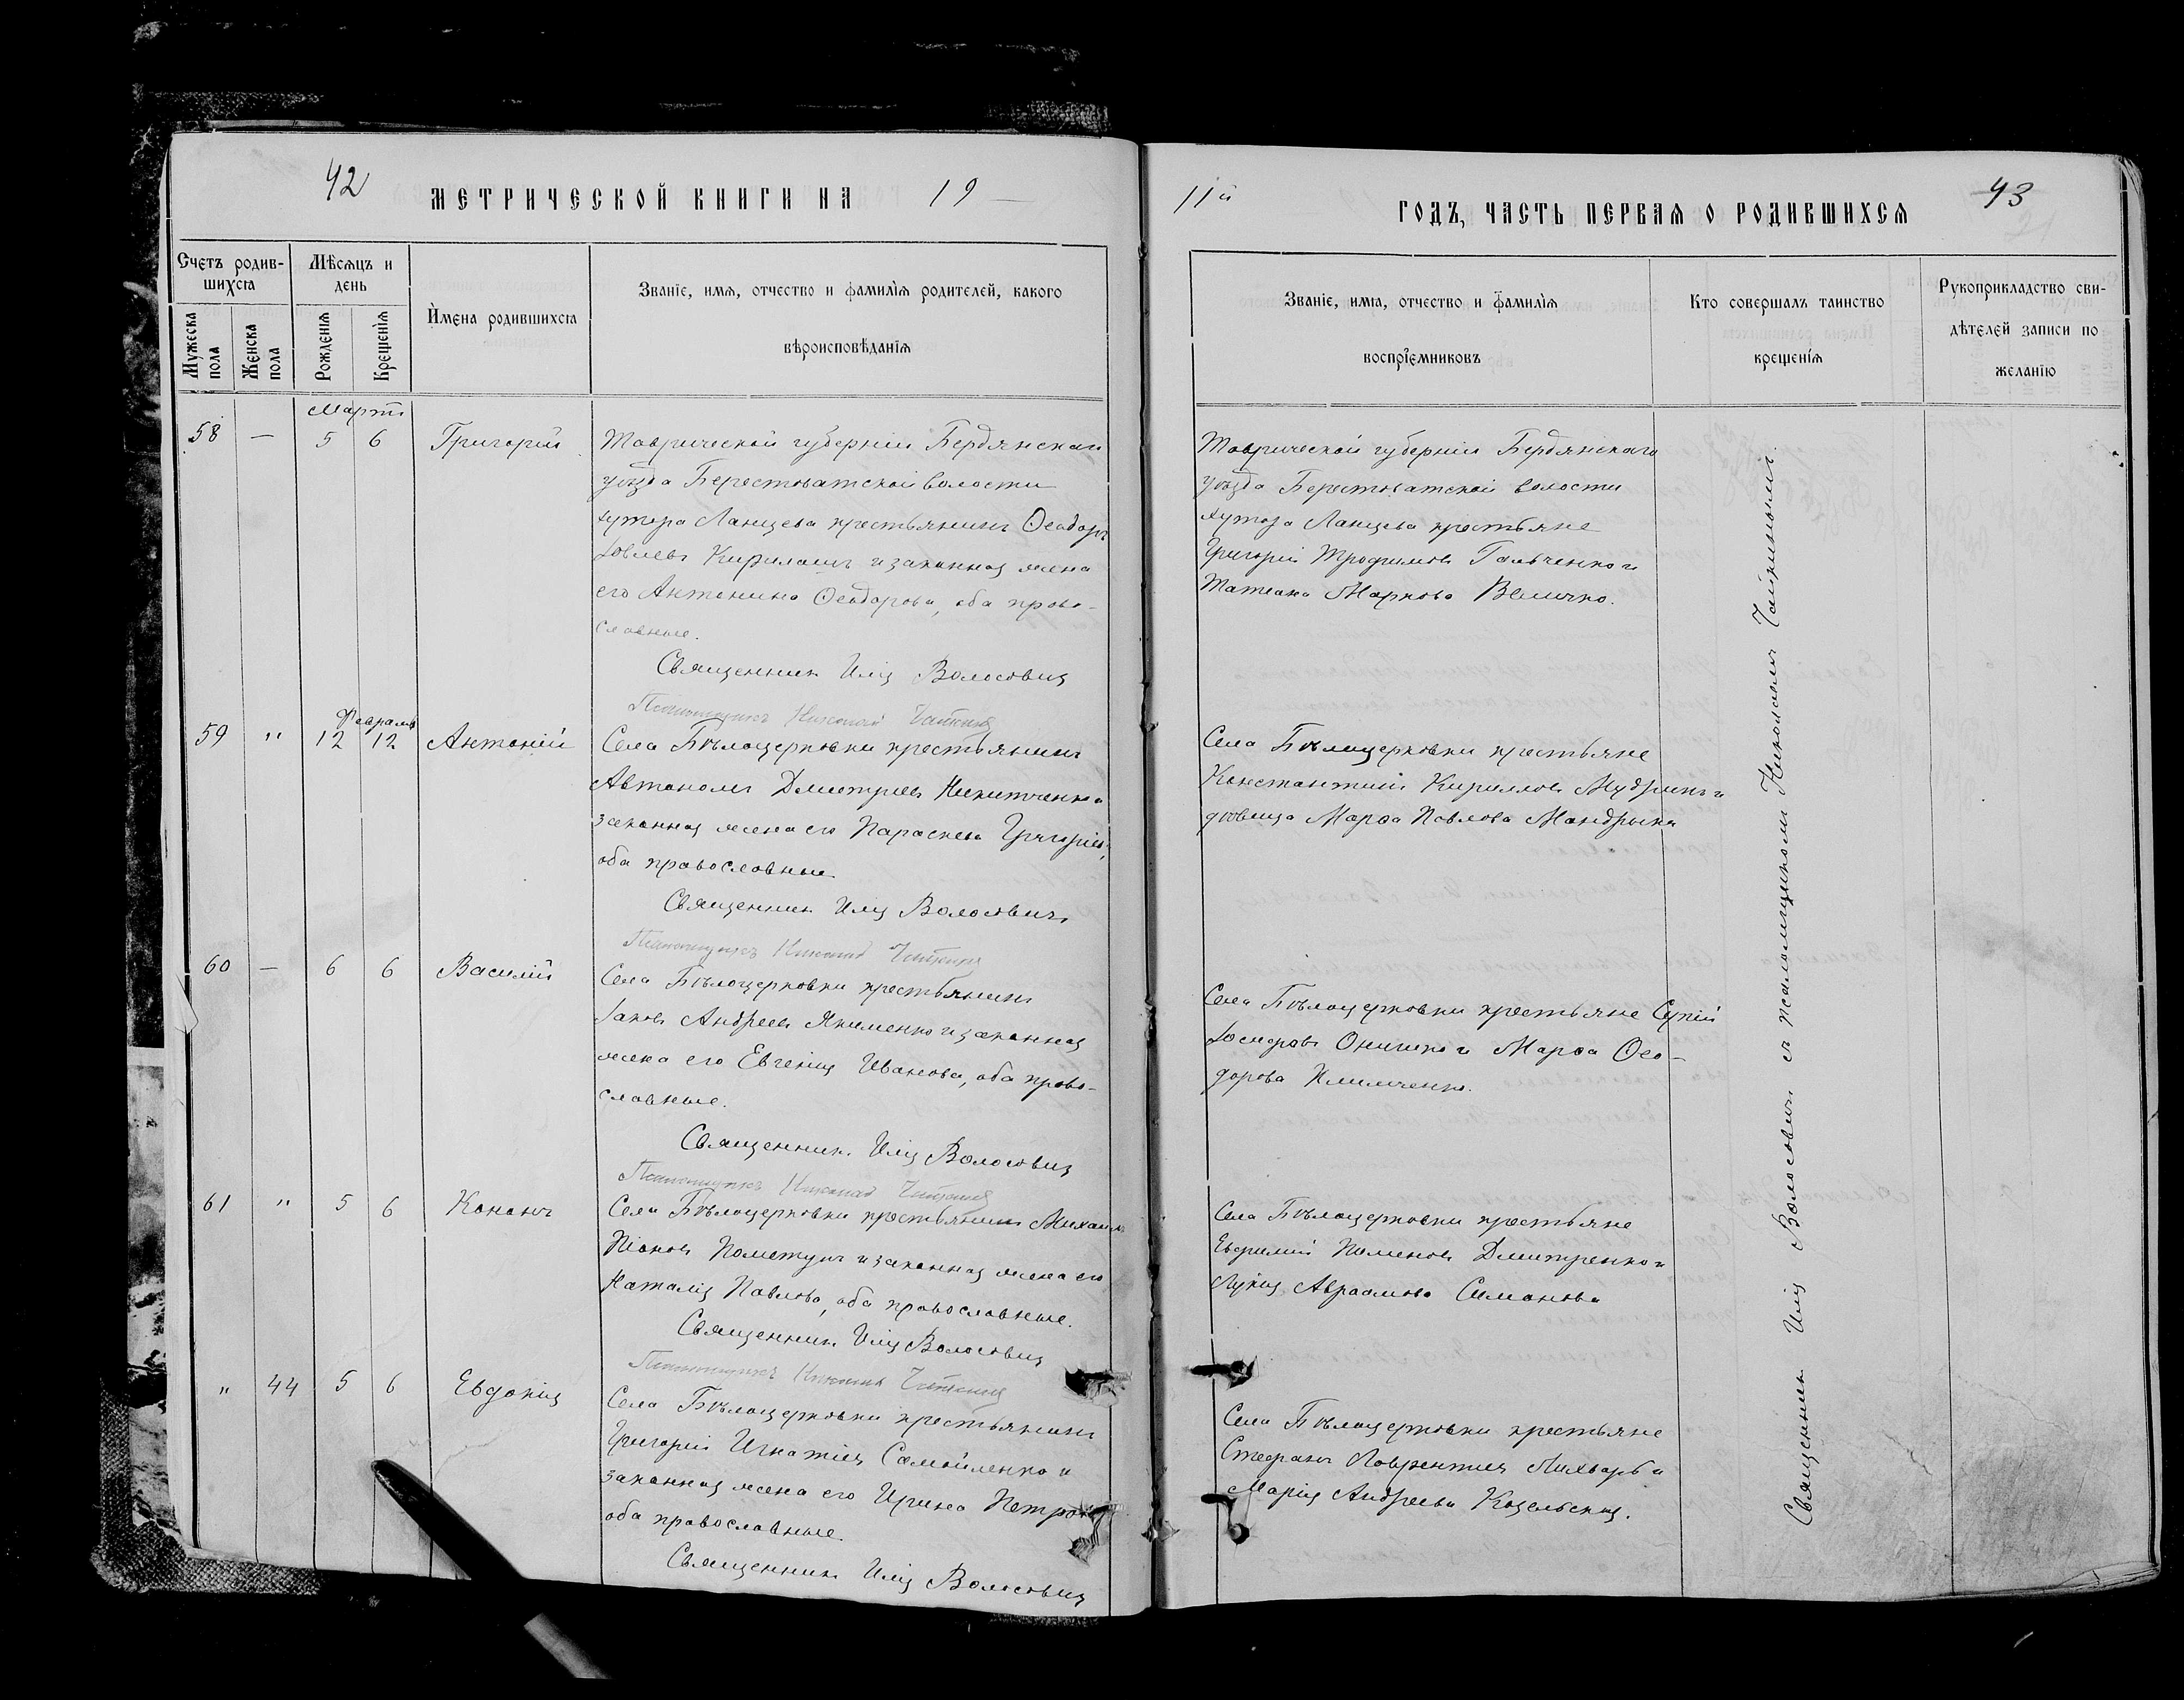 42
МЕТРИЧЕСКОЙ КНИГИ НА 19
Счетъ родив-
шихся
Мѣсяцъ и
день
Имена родившихся
Званіе, имя, отчество и фамилія родителей, какого
вѣроисповѣданія
Мужеска пола
Женска пола
Рожденія
Крещенія
Мартъ
58 — 5 6 Григорій
Таврической губерніи Бердянскаго
уѣзда Берестоватской волости
хутора Ланцева крестьянинъ Ѳеодоръ
Іовлевъ и законная жена
его Антонина Ѳеодорова, оба право-
славные.
Священникъ Илія Волосовичъ
Псаломщикъ Николай
Февраль
59 " 12 12 Антоній
Села Бѣлоцерковки крестьянинъ
Автономъ Дмитріевъ Никитченко и
законная жена его Параскева Григоріева,
оба православные.
Священникъ Илія Волосовичъ
Псаломщикъ Николай
60 — 6 6 Василій
Села Бѣлоцерковки крестьянинъ
Іаковъ Андреевъ Якименко и законная
жена его Евгенія Иванова, оба право-
славные.
Священникъ Илія Волосовичъ
Псаломщикъ Николай
61 " 5 6 Кононъ
Села Бѣлоцерковки крестьянинъ Михаилъ
Пометунъ и законная жена его
Наталія Павлова, оба православные.
Священникъ Илія Волосовичъ
Псаломщикъ Николай
" 44 5 6 Евдокія
Села Бѣлоцерковки крестьянинъ
Григорій Игнатіевъ Самойленко и
законная жена его Ирина Петрова
оба православные.
Священникъ Илія Волосовичъ
11й
ГОДЪ, ЧАСТЬ ПЕРВАЯ О РОДИВШИХСЯ
43
Званіе, имя, отчество и фамилія
воспріемниковъ
Кто совершалъ таинство
крещенія
Рукоприкладство сви-
дѣтелей записи по
желанію
Таврической губерніи Бердянскаго
уѣзда Берестоватской волости
хутора Ланцева крестьяне
Григорій Трофимовъ Гальченко и
Татіана Маркова Величко.
Села Бѣлоцерковки крестьяне
Константинъ Кирилловъ
дѣвица Марѳа Павлова Мандрыка
Села Бѣлоцерковки крестьяне Сергій
Онишко и Марѳа Ѳео-
дорова Климченко.
Села Бѣлоцерковки крестьяне
Евфимій Пименовъ Дмитренко и
Лукія Авраамова Симонова
Села Бѣлоцерковки крестьяне
Стефанъ Лаврентіевъ Лихварь и
Марія Андреева Козельская.
Священникъ Илія Волосовичъ съ псаломщикомъ Николаемъ